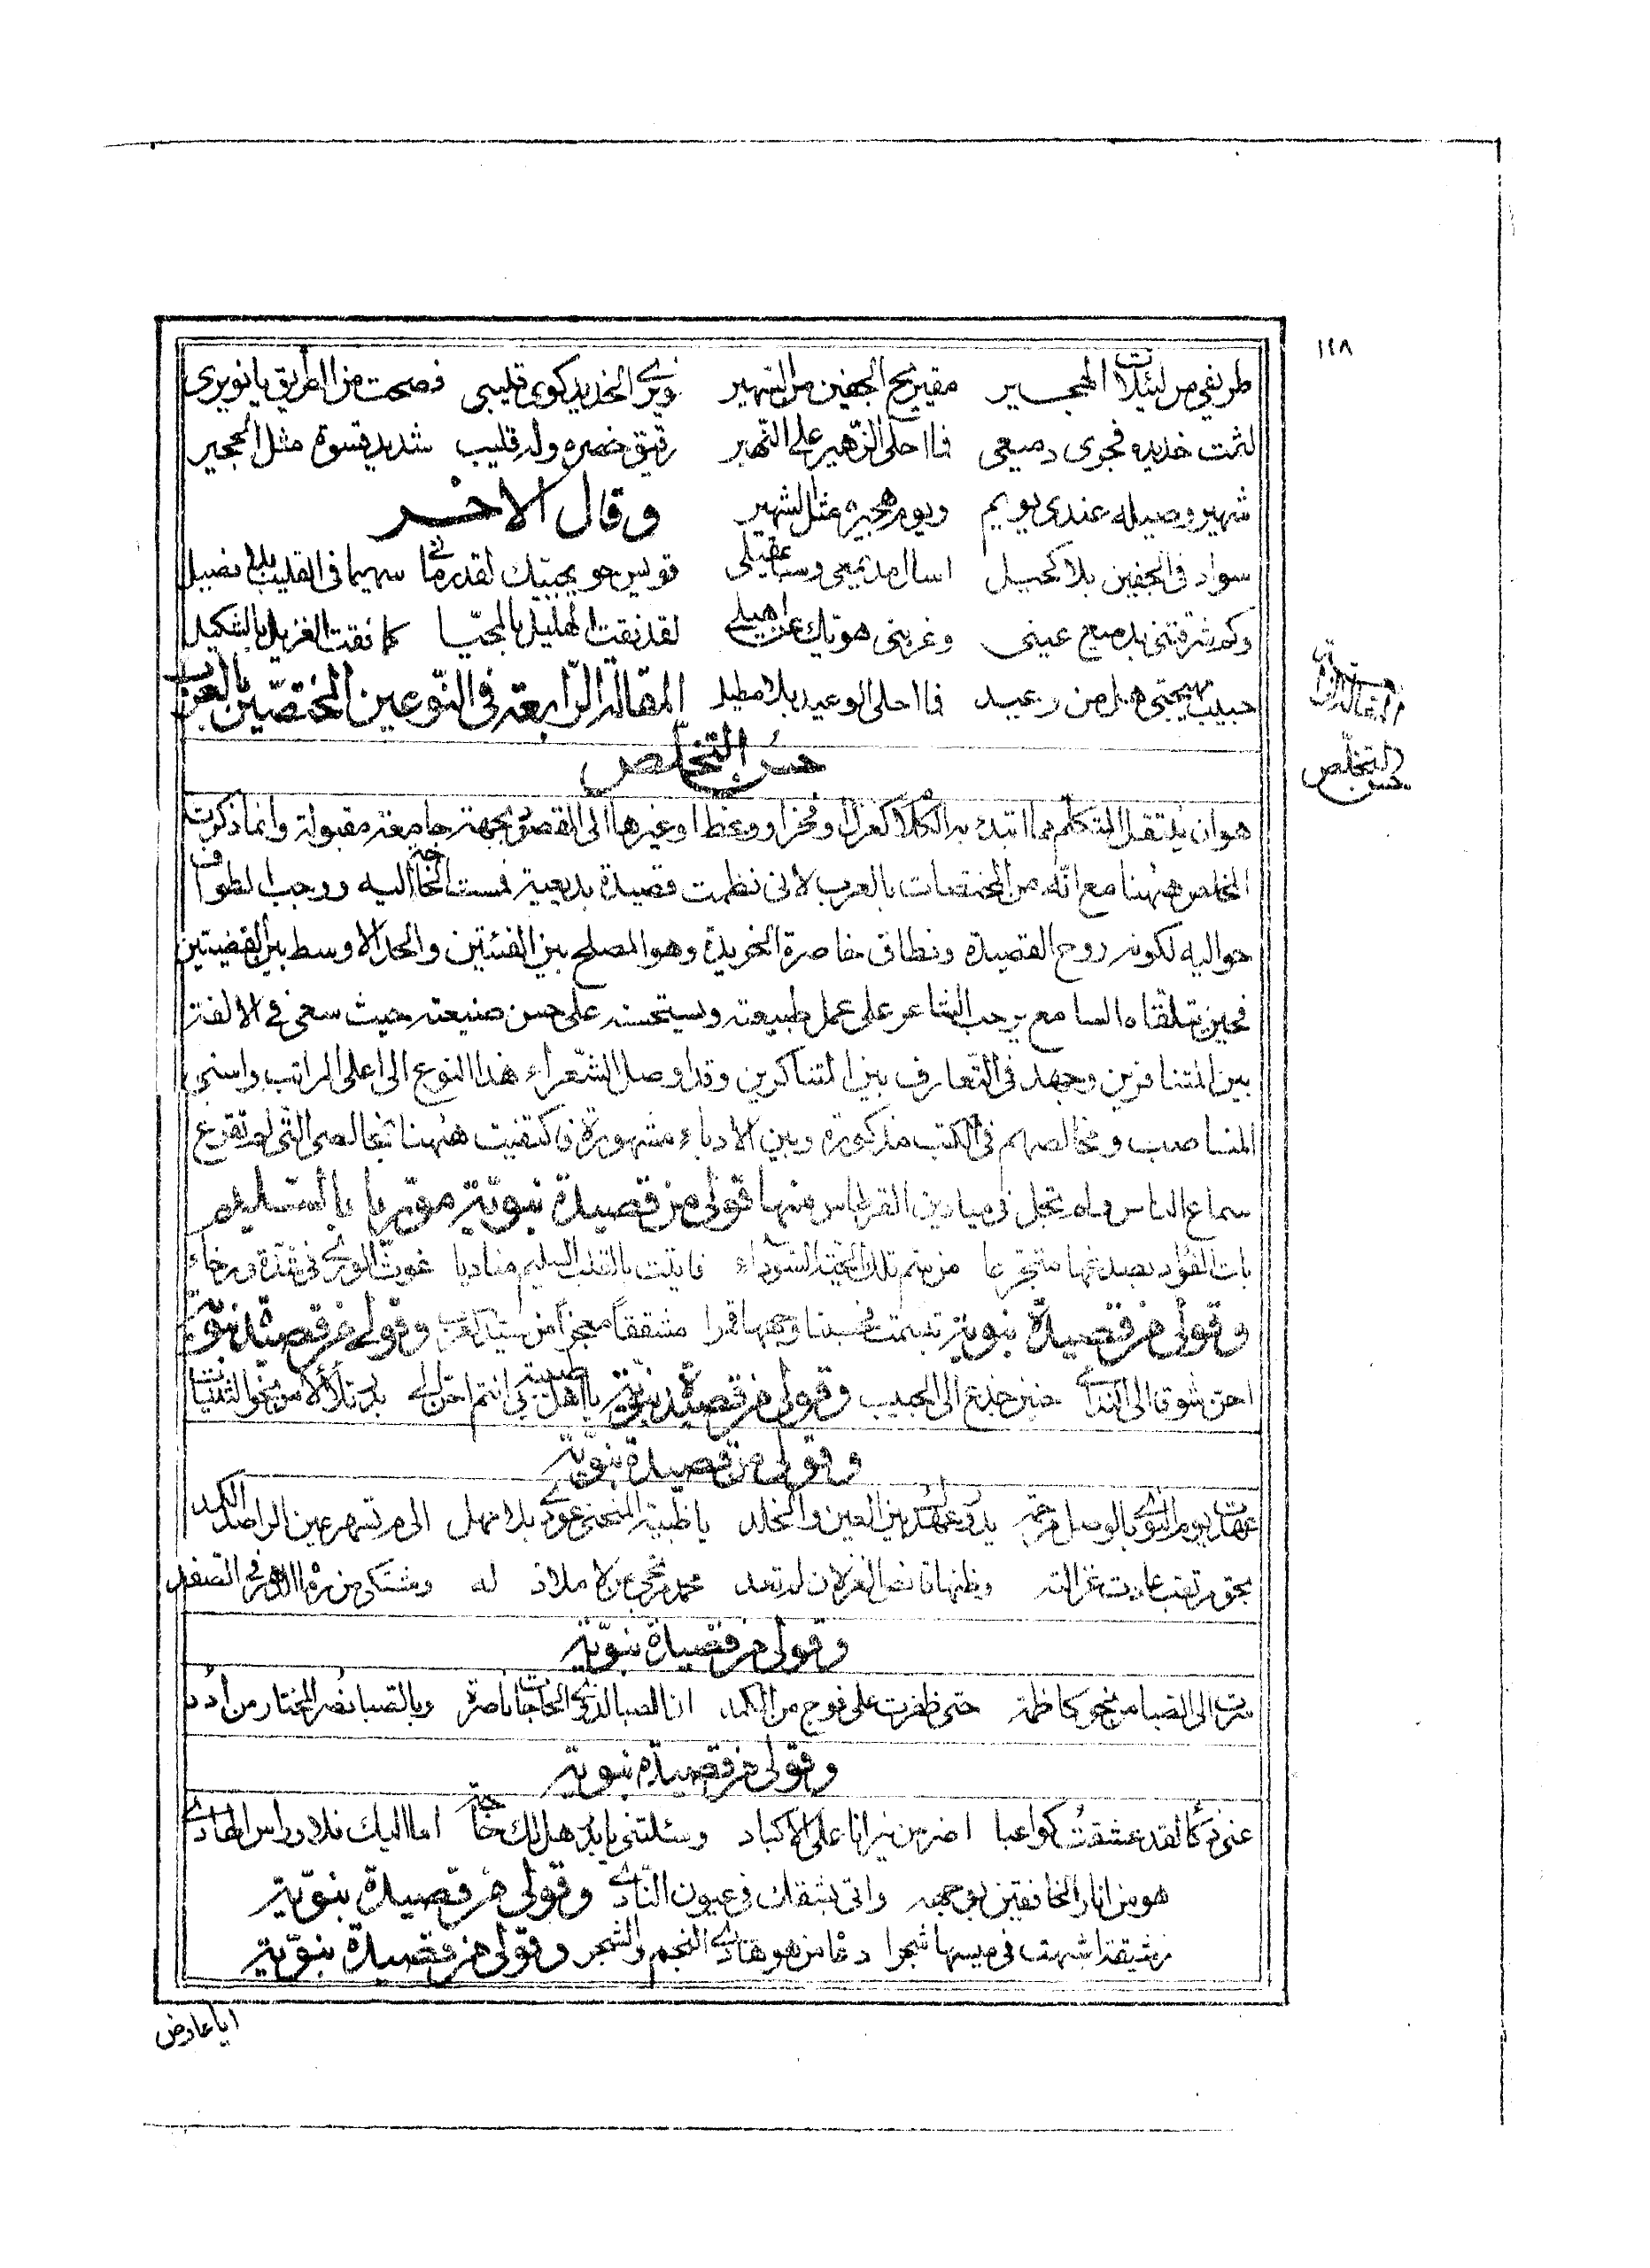 ١١٨
طريفي من لييلات الهجير مقيريح الجفين من السهير نويري الخديد كوى قليبي فصحت من الطريق يا نويري
لثمت خديده فجرى دميعي فما احلى الزهير على النهير رقيق خصيره وله قليب شديد قسوة مثل الحجير
شهير وصيله عندي يويم ويوم هجيره مثل الشهير وقال الاخر
سواد في الجفين بلا كحيل اسال مديمعي وسبا عقيلي قويس حويجبيك لقد رمى سهيما في القليب بلا نصيل
وكم شرقتني بدميع عيني وغربني هويك عن اهيلي لقد نقت الهليل بالمحيا كما نقت الغزيل بالشكيل
حبيب من وعيد فما احلى الوعيد بلا مطيل المقالة الرابعة في النوعين المختصين بالعرب
المقالة الرابعة
حسن التخلص
حسن التخلص
هو ان ينتقل المتكلم مما ابتدئ به الكلام كغزل او فخر او وعظ او غيرها الى المقصود بجهة جامعة مقبولة وانما ذكرت
المخلص ههنا مع انه من المختصات بالعرب لاني نظمت قصيدة بديعية فمست الحاجة اليه ووجب الطواف
حواليه لكونه روح القصيدة ونطاق خاصرة الخريدة وهو المصلح بين الفئتين والحد الاوسط بين القضيتين
فحين يتلقاه السامع يرحب الشاعر على عمل طبيعته ويستحسنه على حسن صنيعته حيث سعى في الالفة
بين المتنافرين وجهد في التعارف بين المتناكرين وقد اوصل الشعراء هذا النوع الى اعلى المراتب واسنى
المناصب ومخالصهم في الكتب مذكورة وبين الادباء مشهورة فاكتفيت ههنا بمخالصي التي لم تقرع
سماع الناس ولم تجل في ميادين القرطاس منها قولي من قصيدة نبوية موريا بالتسليم
بات الفؤاد بصدغها متجرعا من سم تلك الحية السوداء فاتيت بالقلب السليم مناديا غوث الورى في شدة ورخاء
وقولي من قصيدة نبوية تبسمت فحسبنا وجهها قمرا مشققا معجزا من سيد العرب وقولي من قصيدة نبوية
احن شوقا الى حنين جذع الى الحبيب وقولي من قصيدة نبوية يا اهل طيبة انتم بدر تلألأ من نحو الثنيات
وقولي من قصيدة نبوية
عهدت يوم النوى بالوصل مرحمة بين العين والخلد يا ظبية المنحنى عودي بلا مهل الى م تسهر عين الراصد
بحق مرتقب عادت غزالته وظنها قانص الغزلان لم تعد محمد مرتجى من لا ملاذ له ومشتكى من رماه الدهر في الصفد
وقولي من قصيدة نبوية
سرت الى الصبا من نحو كاظمة حتى ظفرت على فوج من الكمد ان الصبا لذوي الحاجات ناصرة وبالصبا نصر المختار من ادد
وقولي من قصيدة نبوية
لقد عشقت كواعبا اضرمن نيرانا على الاكباد وسئلتني يا بدر هل لك حاجة اما اليك فلا وراس الهادي
هو من انار الخافقين بوجهه واتى بشقك في عيون النادي وقولي من قصيدة نبوية
رشيقة اشبهت في ميسها شجرا دعا من هو هادي النجم والشجر وقولي من قصيدة نبوية
ايا عارض